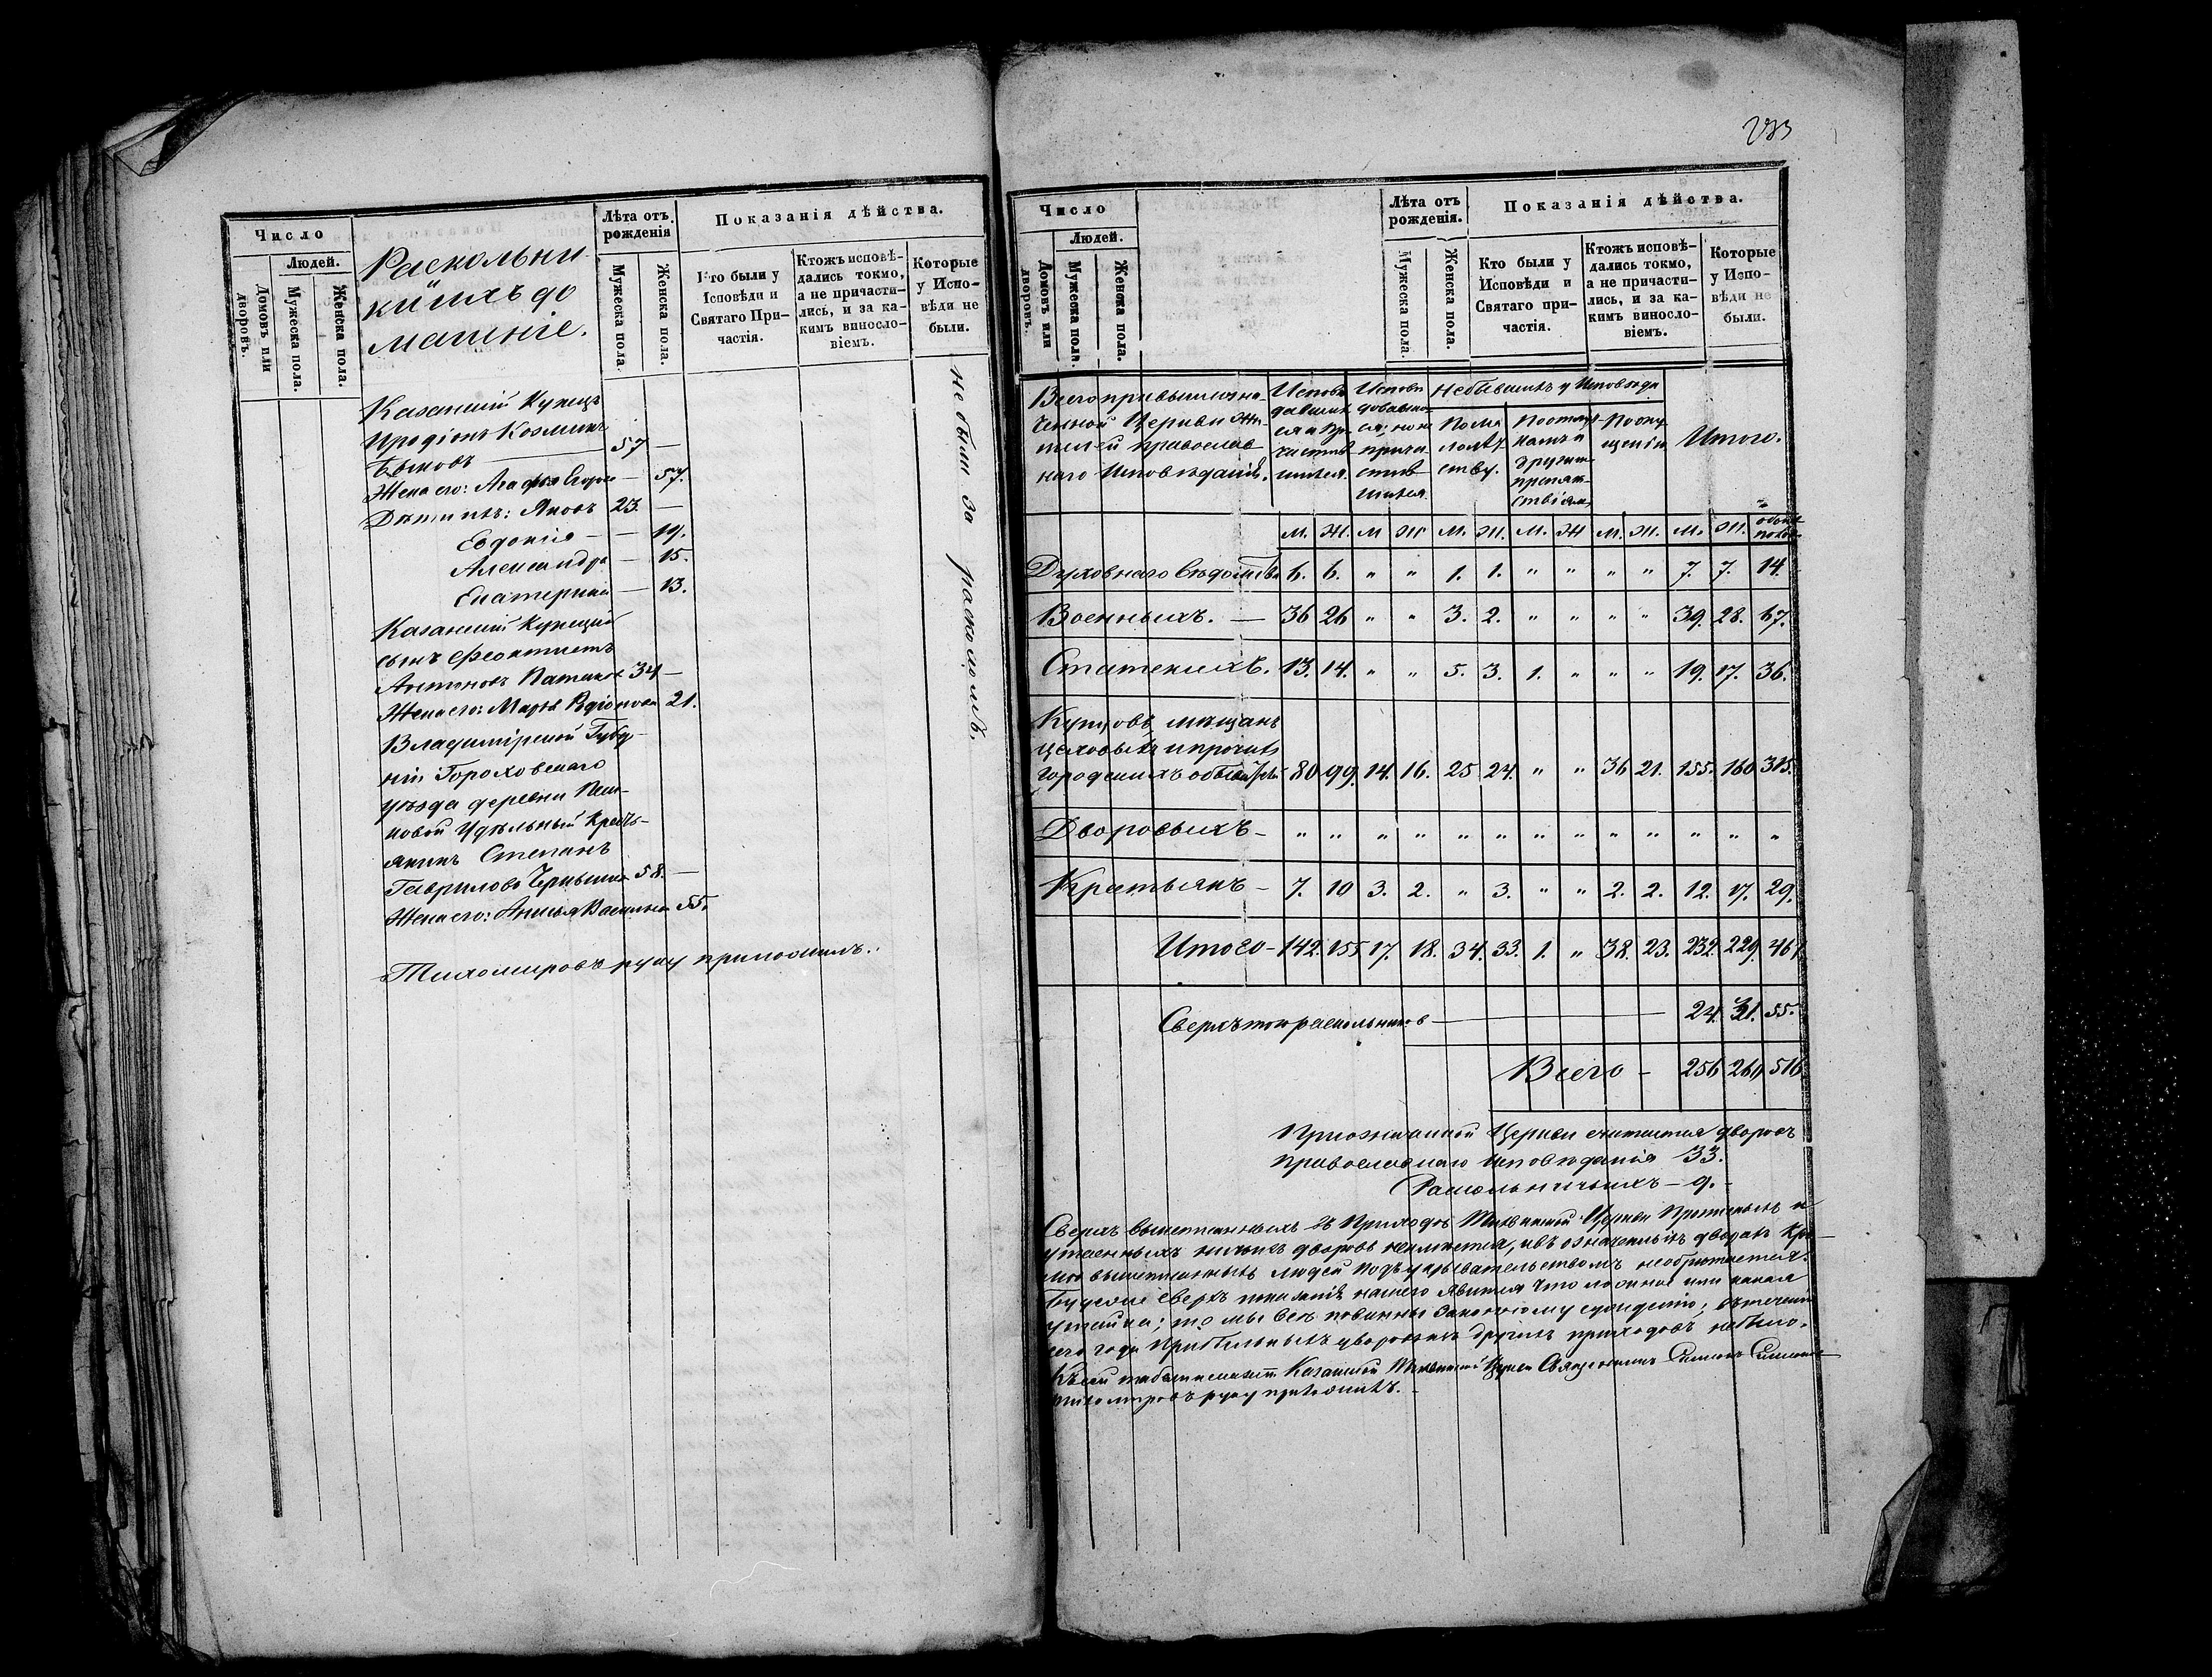 Число
Людей.
Домовъ или дворовъ.
Мужеска пола.
Женска пола.
Раскольни
ки ихъ до
машніе.
Лѣта отъ рожденія
Мужеска пола
Женска пола.
Показанія дѣйства.
Кто были у Исповѣди и Святаго Причастія.
Ктожъ исповѣдались токмо, а не причастились, и за какимъ винословіемъ.
Которые у Исповѣди не были.
Казанскій Купецъ
Иродіонъ Козминъ
57 —
Жена его: Агафья — 57.
Дѣти ихъ: Яковъ 23. —
Евдокія — 19.
Александра — 15.
Екатерина — 13.
Казанскій Купецкій
сынъ Феоктистъ
Антоновъ 34 —
Жена его: Марья Родіонова 21.
Владимірской Губер
ніи Гороховскаго
уѣзда деревни
Удѣльный Кресть-
янинъ Степанъ
Гавриловъ 58. —
Жена его: Анисья Васильева 55.
Тихомировъ руку приложилъ.
не были за расколомъ.
273
Число
Людей.
Домовъ или дворовъ.
Мужеска пола
Женска пола.
Лѣта отъ рожденія.
Мужеска пола.
Женска пола.
Показанія дѣйства.
Кто были у Исповѣди и Святаго причастія.
Ктожъ исповѣдались токмо, а не причастились, и за какимъ винословіемъ.
Которые у Исповѣди не были.
Всего при вышеозна-
ченной Церкви жи-
телей православ-
наго Исповѣданія.
Исповѣ
давших
ся и При
частив
шихся.
Исповѣ
довавших
ся, но не
прича
стив
шихся.
Небывшихъ у Исповѣди
По ма
лолѣт
ству.
По отлуч
камъ и
другим
препят
ствіям
По опу
щенію
Итого.
м. ж. м ж м. ж. м. ж м. ж. м. ж. обоего пола
Духовнаго вѣдомства 6. 6. " " 1. 1. " " " " 7. 7. 14.
Военныхъ. — 36 26 " " 3. 2. " " " " 39. 28. 67.
Статскихъ. 13. 14. " " 5. 3. 1. " " " 19. 17. 36.
Купцовъ, мѣщанъ
цеховыхъ и прочихъ
городскихъ обывател 80 99. 14. 16. 25 24. " " 36 21. 155. 160 315.
Дворовыхъ - " " " " " " " " " " " " "
Крестьянъ - 7. 10 3. 2. " 3. " " 2. 2. 12. 17. 29.
Итого - 142. 155 17. 18. 34. 33. 1. " 38. 23. 232. 229. 461
Сверхъ того раскольниковъ — 24. 31. 55.
Всего - 256 260 516
При означенной Церкви считается дворовъ
православнаго исповѣданія 33.
Раскольничьихъ — 9.
Сверхъ вышеписанныхъ въ Приходѣ Тихвинской Церкви Прописныхъ и
утаенныхъ никакихъ дворовъ неимѣется, и въ означенныхъ дворахъ кро-
мѣ вышеписанныхъ людей подъ укрывательствомъ необрѣтается.
Буде же сверхъ показанія нашего явится что ложное или какая
утайка; то мы всѣ повинны законному сужденію; въ теченіи
сего года Прибылыхъ дворовъ изъ другихъ приходовъ небыло.
Къ сей табели Казанской Тихвинской Церкви Священникъ Симеонъ
Тихомировъ руку приложилъ.